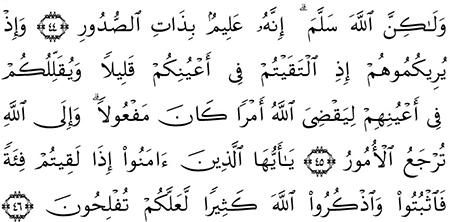 وَلَٰكِنَّ ٱللَّهَ سَلَّمَ ۗ إِنَّهُۥ عَلِيمٌۢ بِذَاتِ ٱلصُّدُورِ ﴿٤٤﴾ وَإِذْ
يُرِيكُمُوهُمْ إِذِ ٱلْتَقَيْتُمْ فِىٓ أَعْيُنِكُمْ قَلِيلًا وَيُقَلِّلُكُمْ
فِىٓ أَعْيُنِهِمْ لِيَقْضِىَ ٱللَّهُ أَمْرًا كَانَ مَفْعُولًا ۗ وَإِلَى ٱللَّهِ
تُرْجَعُ ٱلْأُمُورُ ﴿٤٥﴾ يَٰٓأَيُّهَا ٱلَّذِينَ ءَامَنُوٓا۟ إِذَا لَقِيتُمْ فِئَةً
فَٱثْبُتُوا۟ وَٱذْكُرُوا۟ ٱللَّهَ كَثِيرًا لَّعَلَّكُمْ تُفْلِحُونَ ﴿٤٦﴾